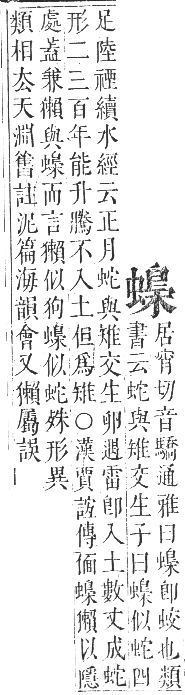 蟂
居宵切音驕通雅曰蟂卽蛟也類
書云蛇與雉交生子曰蟂似蛇四
足陸禋續水經云正月蛇與雉交生卵遇雷卽入土數丈成蛇
形二三百年能升騰不入土但爲雉○漢賈誼傳偭蟂獺以隱
處葢兼獺與蟂而言獺似狗蟂似蛇殊形異
類相厺天淵舊註泥篇海韻會又獺屬誤